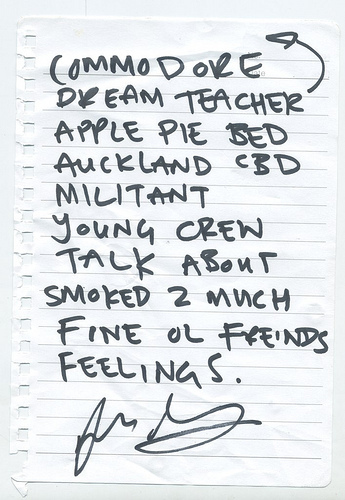 COMMODORE
DREAM TEACHER
APPLE PIE BED
AUCKLAND CBD
MILITANT
YOUNG CREW
TALK ABOUT
SMOKED 2 MUCH
FINE OL FREINDS
FEELINGS.